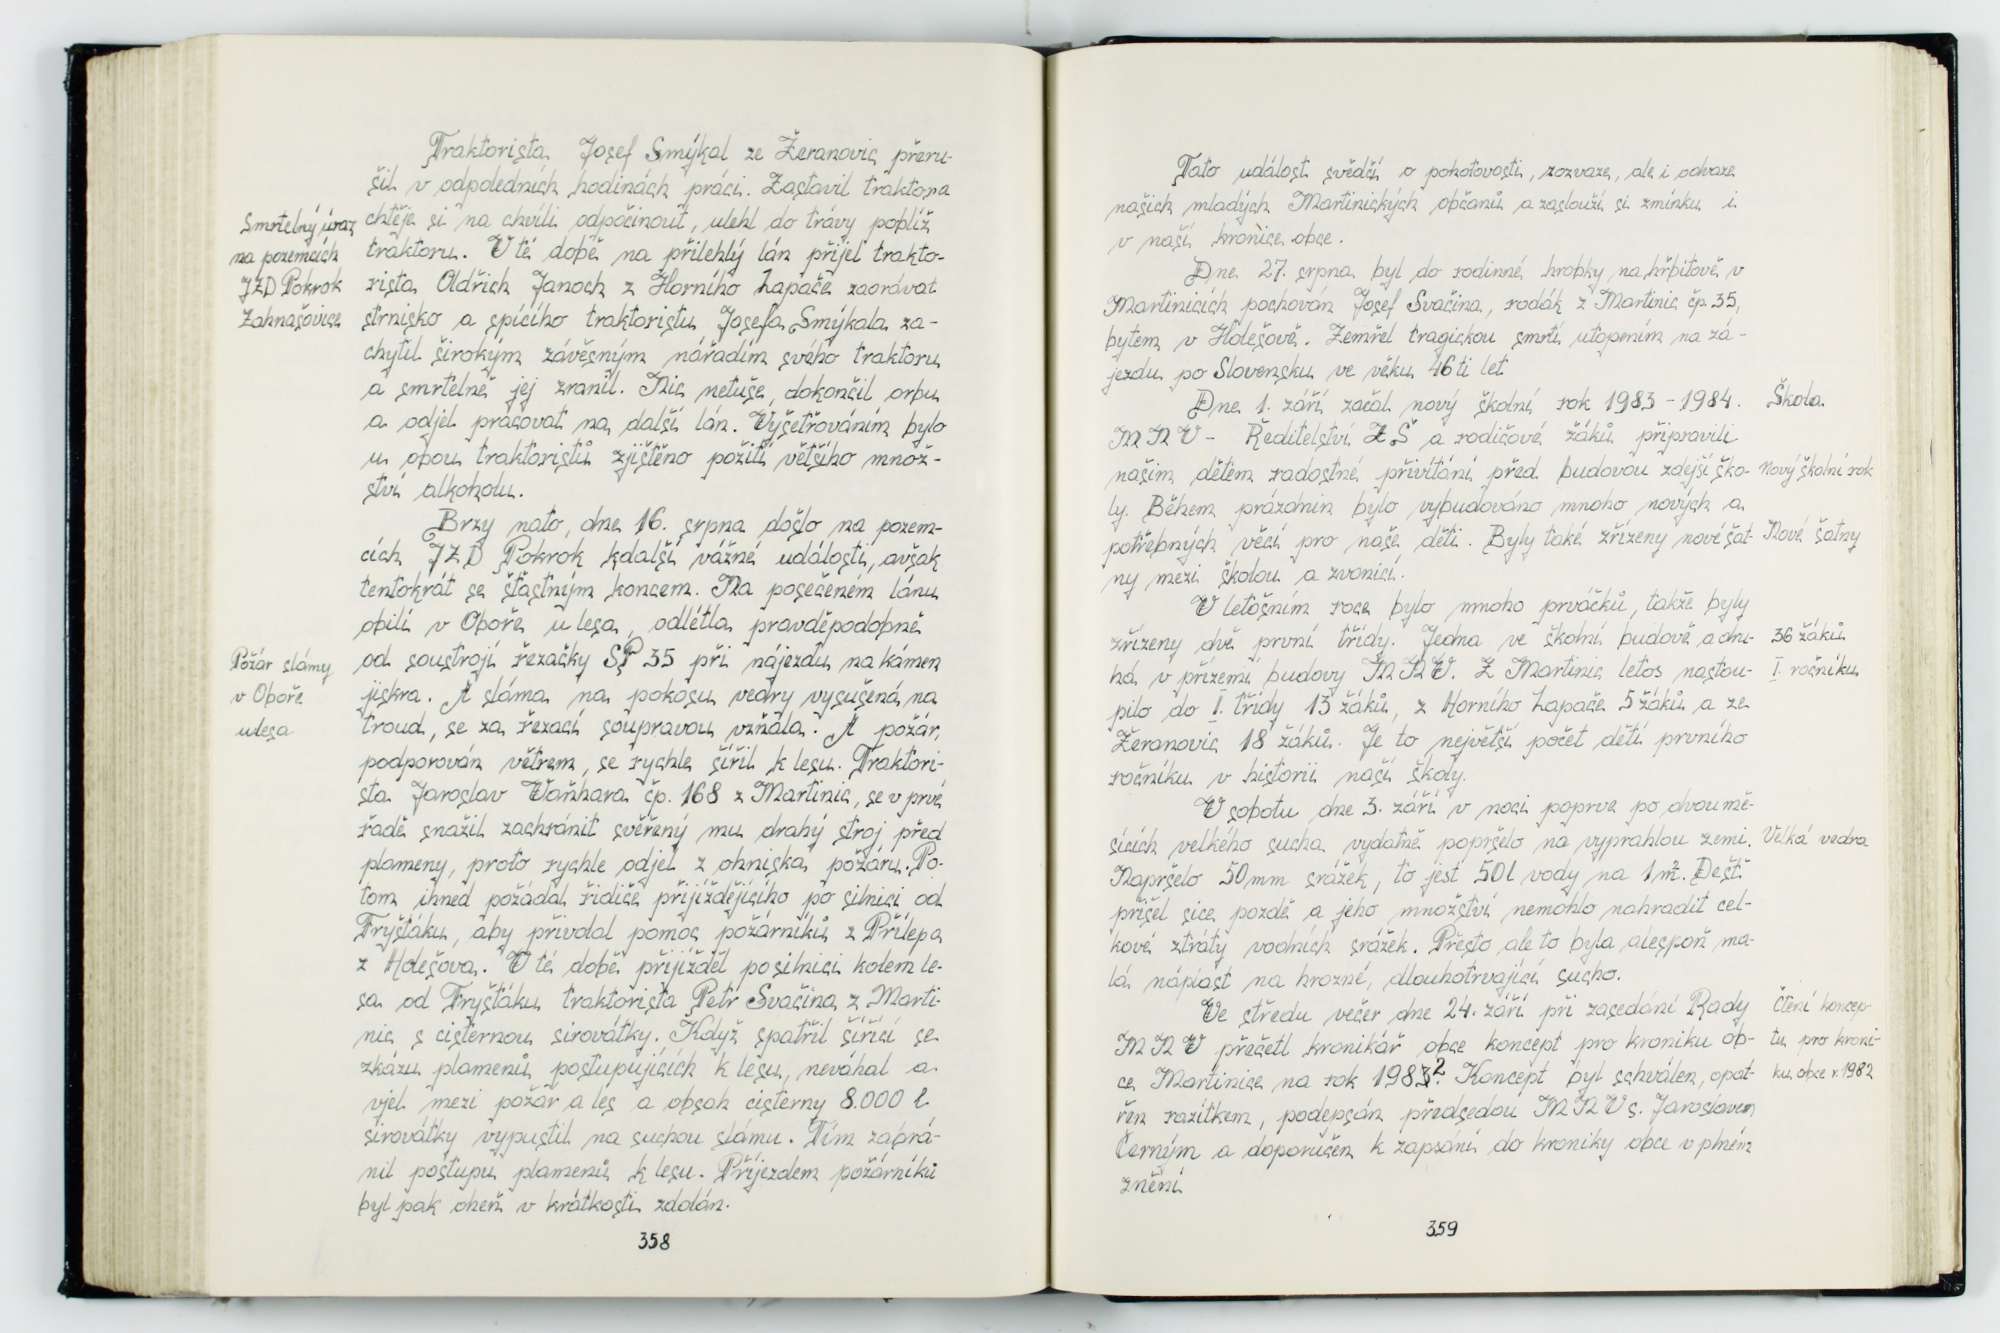 Traktorista Josef Smýkal ze Žeranovic přeru-
šil v odpoledních hodinách práci. Zastavil traktor a
chtěje si na chvíli odpočinout, ulehl do trávy poblíž
traktoru. V té době na přilehlý lán přijel trakto-
rista Oldřich Janoch z Horního Lapače zaorávat
strnisko a spícího traktoristu Josefa Smýkala za-
chytil širokým závěsným nářadím svého traktoru
a smrtelně jej zranil. Nic netuše, dokončil orbu
a odjel pracovat na další lán. Vyšetřováním bylo
u obou traktoristů zjištěno požití většího množ-
ství alkoholu.
Smrtelný úraz
na pozemcích
JZD Pokrok
Zahnašovice
Brzy nato, dne 16. srpna došlo na pozem-
cích JZD Pokrok kdalší vážné události, avšak
tentokrát se šťastným koncem. Na posečeném lánu
obilí v Oboře u lesa, odlétla pravděpodobně
od soustrojí řezačky SP 35 při nájezdu na kámen
jiskra. A sláma na pokosu vedry vysušená na
troud, se za řezací soupravou vzňala. A požár,
podporován větrem, se rychle šířil k lesu. Traktori-
sta Jaroslav Vaňhara čp. 168 z Martinic, se v prvé
řadě snažil zachránit svěřený mu drahý stroj před
plameny, proto rychle odjel z ohniska požáru. Po-
tom ihned požádal řidiče přijíždějícího po silnici od
Fryštáku, aby přivolal pomoc požárníků z Přílep a
z Holešova. V té době přijížděl po silnici kolem le-
sa od Fryštáku traktorista Petr Svačina z Marti-
nic s cisternou sirovátky. Když spatřil šířící se
zkázu plamenů postupujících k lesu, neváhal a
vjel mezi požár a les a obsah cisterny 8.000 l
sirovátky vypustil na suchou slámu. Tím zabrá-
nil postupu plamenů k lesu. Příjezdem požárníků
byl pak oheň v krátkosti zdolán.
Požár slámy
v Oboře
u lesa
358
Tato událost svědčí o pohotovosti, rozvaze, ale i odvaze
našich mladých Martinických občanů a zaslouží si zmínku i
v naší kronice obce.
Dne 27. srpna byl do rodinné hrobky na hřbitově v
Martinicích pochován Josef Svačina, rodák z Martinic čp. 35,
bytem v Holešově. Zemřel tragickou smrtí utopením na zá-
jezdu po Slovensku ve věku 46ti let
Dne 1. září začal nový školní rok 1983 - 1984.
MNV - Ředitelství ZŠ a rodičové žáků připravili
našim dětem radostné přivítání před budovou zdejší ško-
ly. Během prázdnin bylo vybudováno mnoho nových a
potřebných věcí pro naše děti. Byly také zřízeny nové šat-
ny mezi školou a zvonicí.
Škola
Nový školní rok
Nové šatny
V letošním roce bylo mnoho prváčků, takže byly
zřízeny dvě první třídy. Jedna ve školní budově a dru-
há v přízemí budovy MNV. Z Martinic letos nastou-
pilo do I. třídy 13 žáků, z Horního Lapače 5 žáků a ze
Žeranovic 18 žáků. Je to největší počet dětí prvního
ročníku v historii naší školy.
36 žáků
I. ročníku
V sobotu dne 3. září v noci poprvé po dvou mě-
sících velkého sucha vydatně popršelo na vyprahlou zemi.
Napršelo 50mm srážek, to jest 50l vody na 1m². Déšť
přišel sice pozdě a jeho množství nemohlo nahradit cel-
kové ztráty vodních srážek. Přesto ale to byla alespoň ma-
lá náplast na hrozné, dlouhotrvající sucho.
Velká vedra
Ve středu večer dne 24. září při zasedání Rady
MNV přečetl kronikář obce koncept pro kroniku ob-
ce Martinice na rok 1983². Koncept byl schválen, opat-
řen razítkem, podepsán předsedou MNV s. Jaroslavem
Černým a doporučen k zapsání do kroniky obce v plném
znění
Čtení koncep-
tu pro kroni-
ku obce r. 1982
359